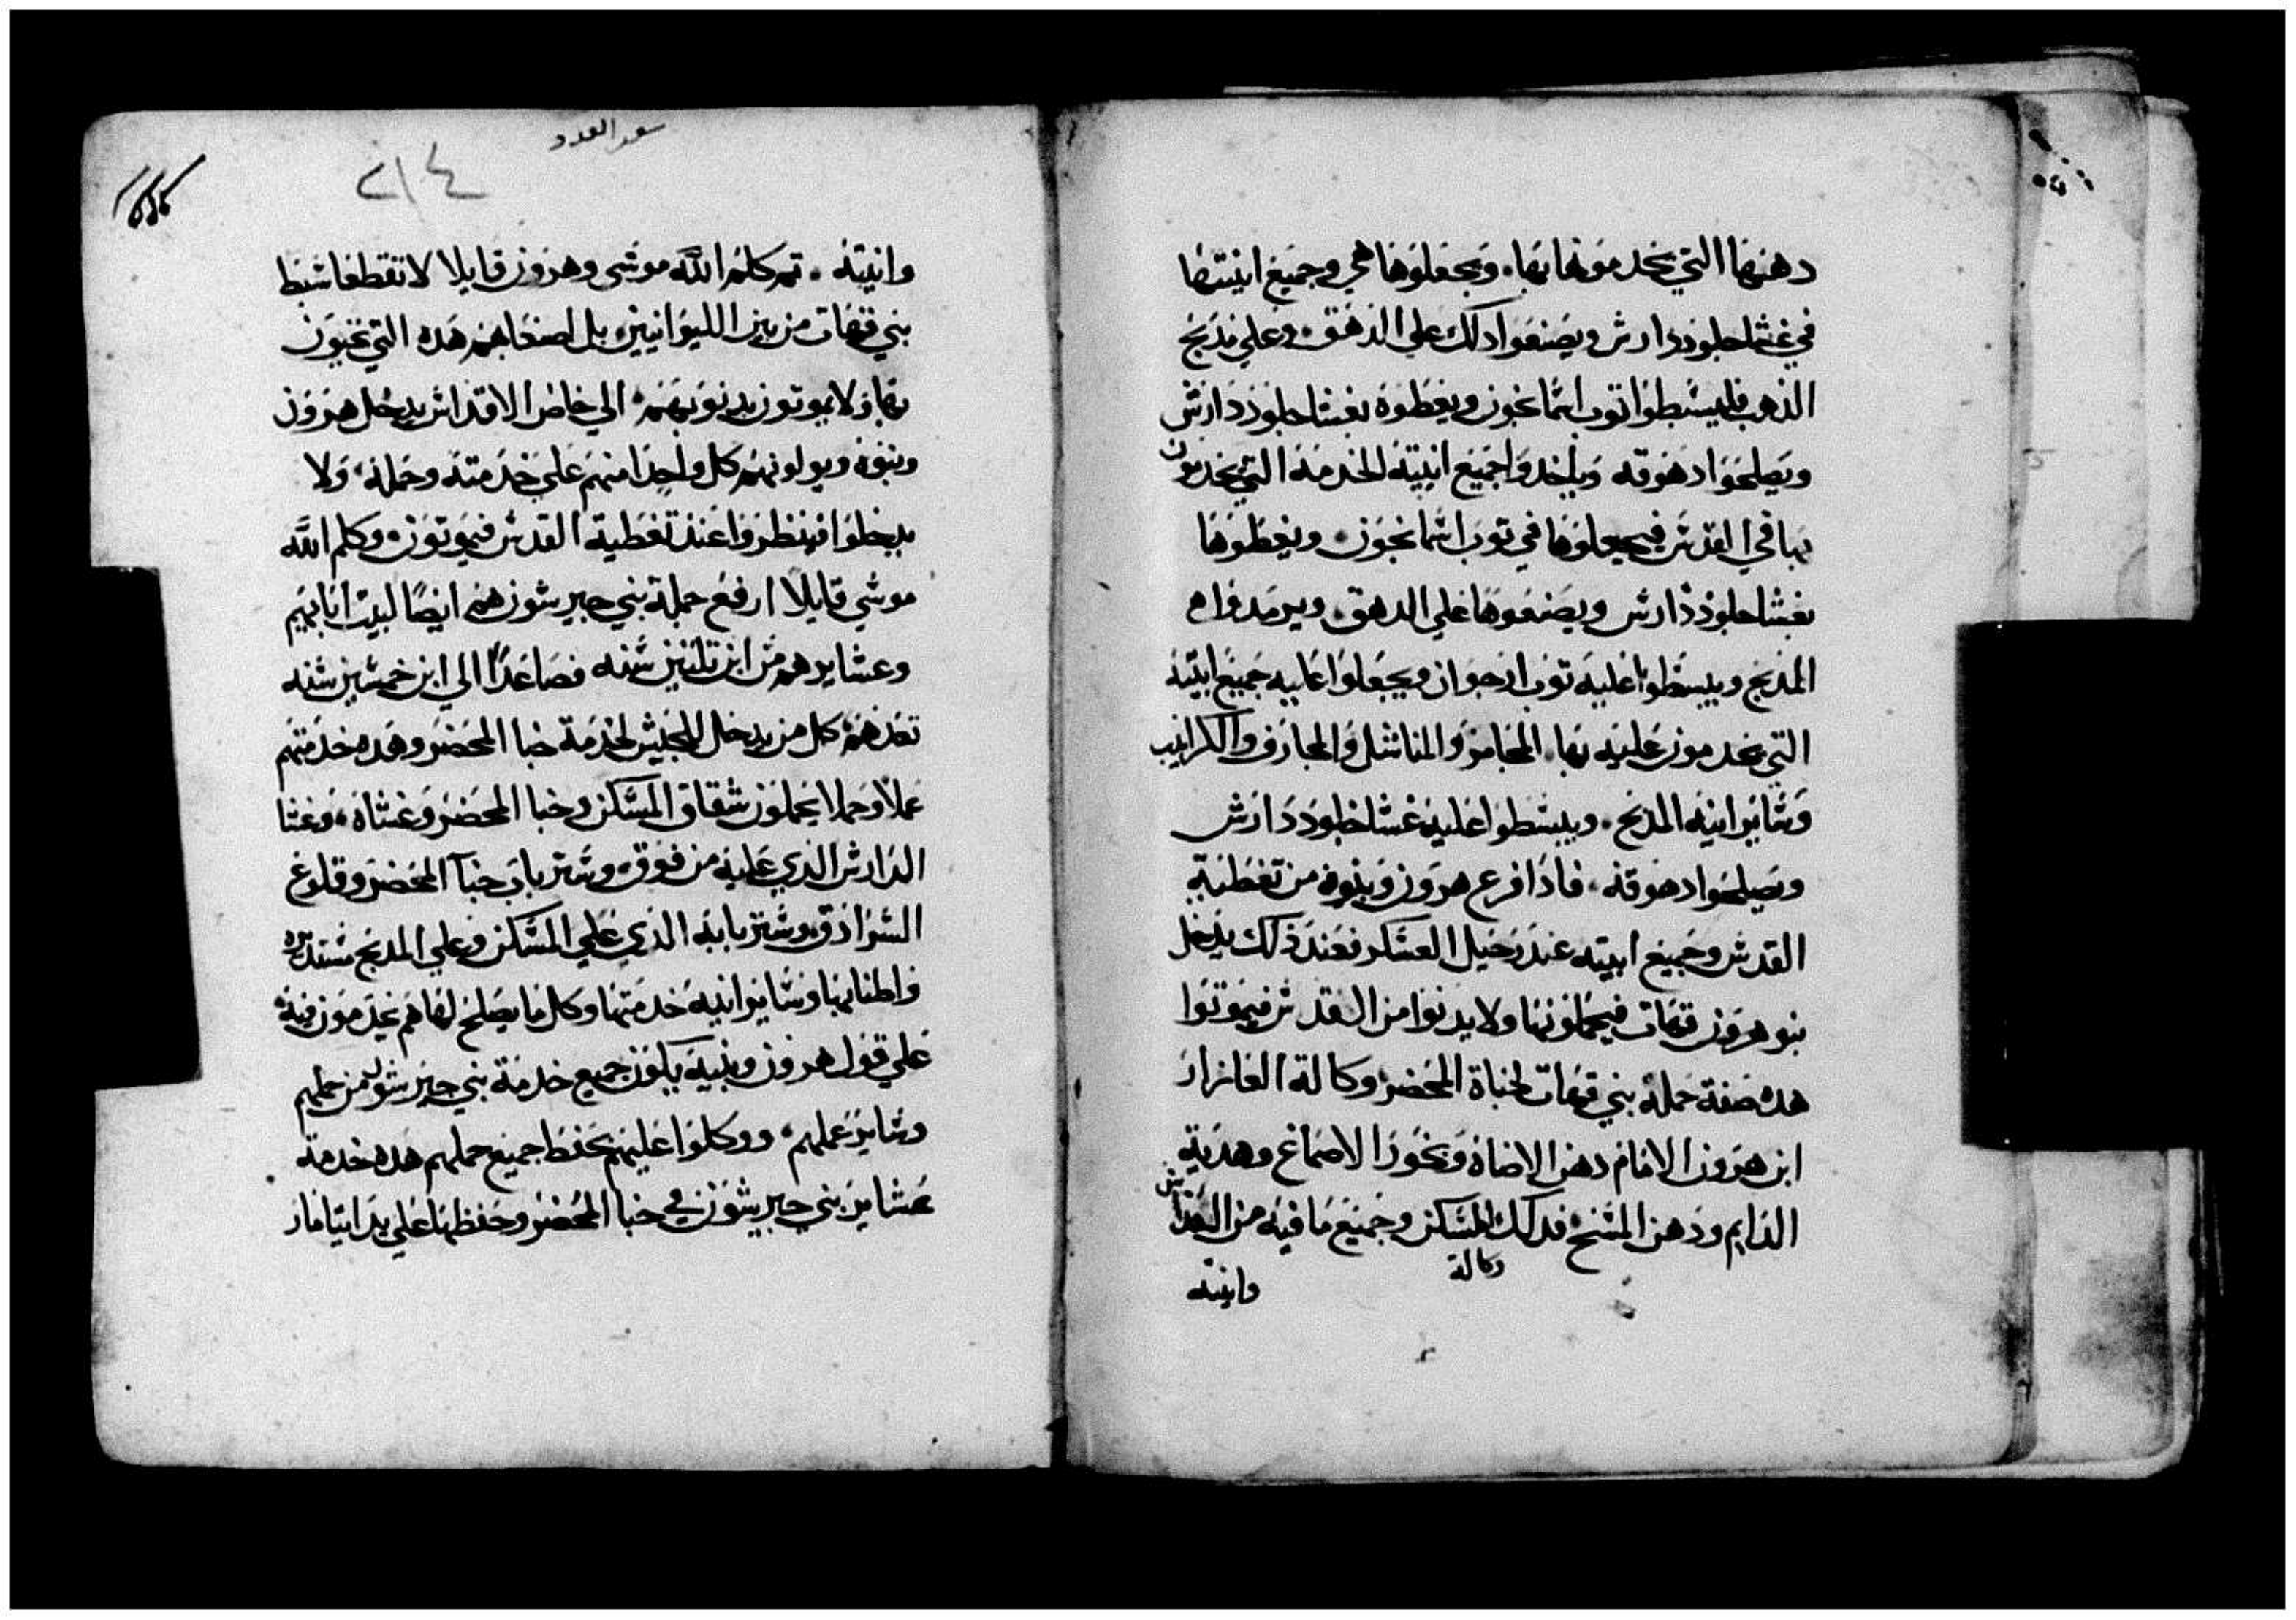 دهنها التي يخدمونها بها. ويجعلوها هي وجميع انيتها
في غشا جلود دارش ويصنعوا دلك علي الدهق. وعلي مدبح
الذهب فليبسطوا توب اسمانجون ويغطوه بغشا جلود دارش
ويصلحوا دهوقه وياخدوا جميع انيته الخدمة التي يخدمون
بها في القدس فيجعلوها في توب اسمانجون. ويغطوها
بغشا جلود دارش ويصنعوها علي الدهق. ويرمدوا
المدبح ويبسطوا عليه توب ارجوان ويجعلوا عليه جميع انيته
التي يخدمون عليه بها. المجامر والمناشل والمجارف والكرانيب
وساير انية المدبح. ويبسطوا عليه غشا جلود دارش
ويصلحوا دهوقه. فادا فرع هرون وبنوه من تغطية
القدس وجميع انيته عند رحيل العسكر فعند ذلك يدخل
بنو هرون قهات فيحملونها ولا يدنوا من القدس فيموتوا
هده صفة حملة بني قهات لخباة المحضر وكالة العازار
ابن هرون الامام دهن الاضاة وبخور الاصماغ وهدية
الدايم ودهن المسح فدلك المسكن وجميع ما فيه من القداس
وكالة
وانيته
سفر العدد
٢١٤
وانيته. تم كلم الله موسي وهرون قايلا لا تقطعا سبط
بني قهات من بين الليوانيين بل اصنعا بهم هده التي يحيون
بها ولا يموتون بدنوبهم. الي خاص الاقداس يدخل هرون
وبنوه ويولونهم كل واحدا منهم علي خدمته وحمله. ولا
يدخلوا فينظروا عند تغطية القدس فيموتون. وكلم الله
موسي قايلا ارفع جملة بني جيرشون هم ايضا لبيت ابايهم
وعشايرهم من ابن تلتين سنه فصاعدا الي ابن خمسين سنه
تعدهم كل من يدخل للجيش لخدمة خبا المحضر وهده خدمتهم
عملا وحملا يحملون شقاق المسكن وخبا المحضر وغشاه. وغشا
الدارش الذي عليه من فوق. وستر باب خبا المحضر وقلوع
السرادق وستر بابه الذي علي المسكن وعلي المدبح مستديره
واطنابها وساير انية خدمتها وكل ما يصلح لها هم يخدمون فيه
علي قول هرون وبنيه يكون جميع خدمة بني جيرشون من حملهم
وساير عملهم. ووكلوا عليهم بحفظ جميع حملهم هده خدمة
عشاير بني جيرشون في خبا المحضر وحفظها علي يد ايتامار